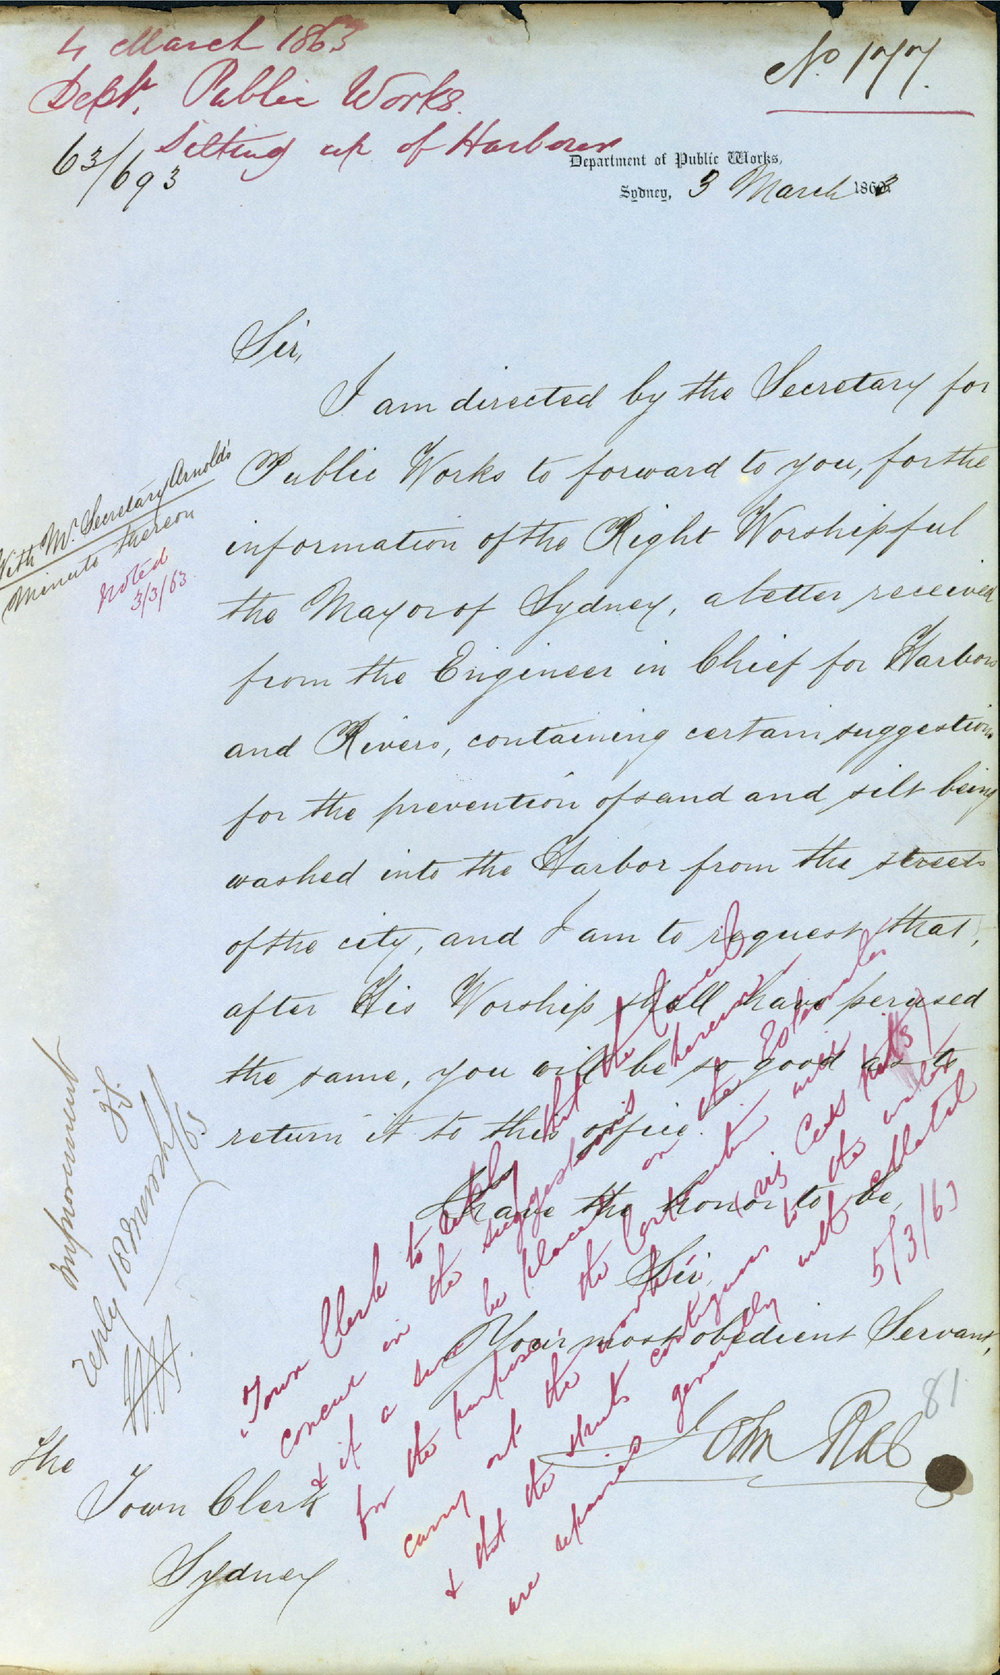 4 March 1863
Dept. Public Works.
Silting up of Harbour
63/693
No. 177.
Department of Public Works,
Sydney, 3 March 1863
Sir,
I am directed by the Secretary for
Public Works to forward to you, for the
information of the Right Worshipful
the Mayor of Sydney, a letter received
from the Engineer in Chief for Harbors
and Rivers, containing certain suggestions
for the prevention of sand and silt being
washed into the Harbor from the streets
of the city, and I am to request that,
after His Worship shall have perused
the same, you will be so good as to
return it to this office.
I have the honor to be,
Sir,
Your most obedient Servant,
John Rae
81
The
Town Clerk
Sydney
With Mr. Secretary Arnold's
Minute thereon
Noted
3/3/63
Improvement
reply 18 March/63
"Town Clerk to reply that the Council
concur in the suggestions herein
& if a sum be placed on the Estimates
for the purpose the Corporation will
carry out the work
& that the streets contiguous to the water
are repaired generally with
5/3/63